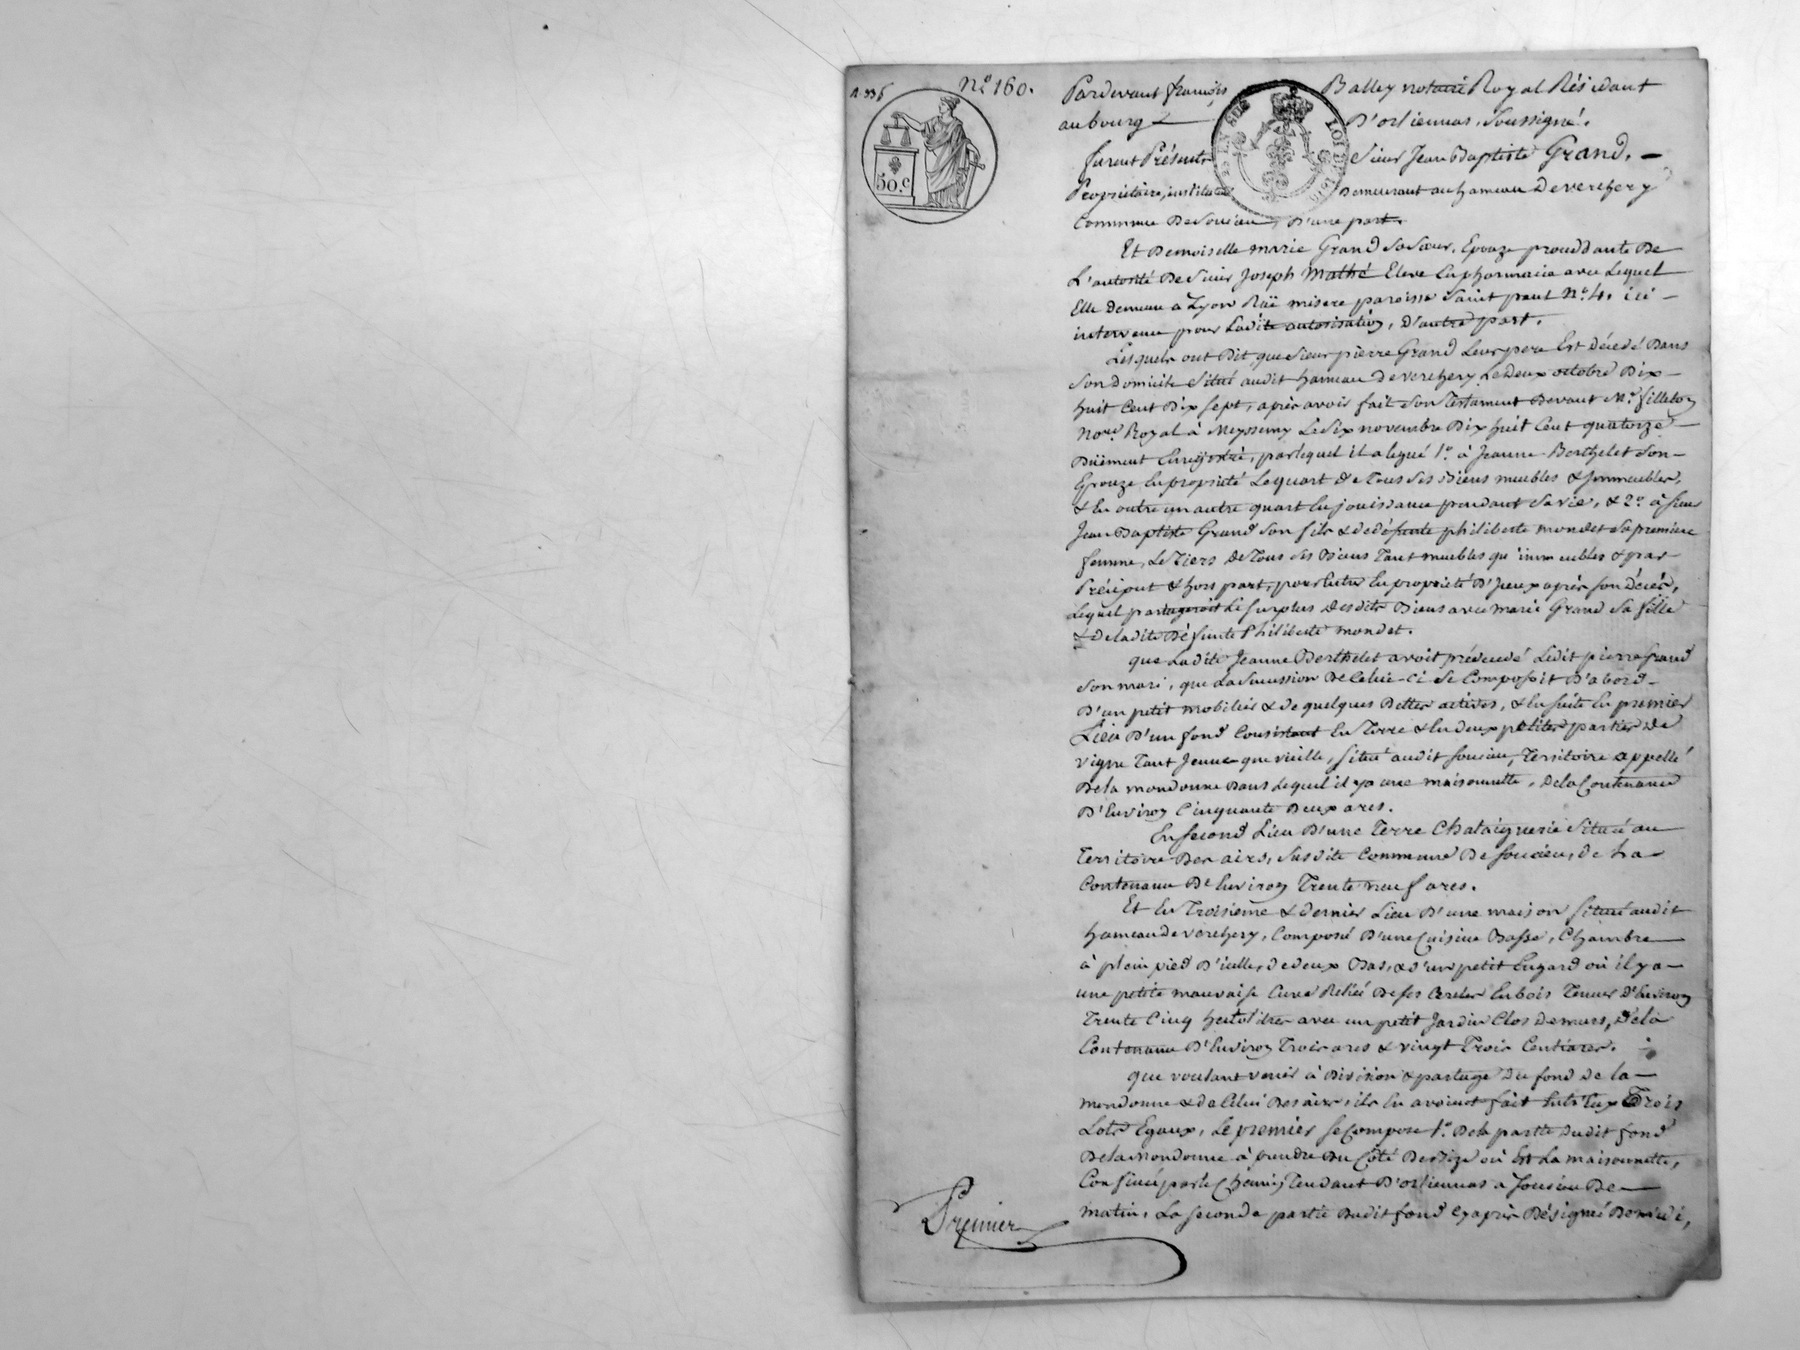 N.º 160.
50.c
Pardevant françois Balley notaire Royal Résidant
au bourg D'orliennas, Soussigné.
furent Présents Sieur Jean Baptiste Grand,
Propriétaire, instituteur Demeurant au hameau de verchery
Commune De Soucieu, D'une part.
Et Demoiselle marie Grand Sa Sœur, Epouze procédante De
L'autorité De Sieur Joseph Mathé Eleve En pharmacie avec Lequel
Elle demeure a Lyon Ruë misere paroisse Saint paul N.º 4. ici
intervenu pour Ladite autorisation, D'autre part.
Lesquels ont Dit que Sieur pierre Grand Leur pere Est Décédé Dans
Son Domicile Situé audit hameau De verchery Le Deux octobre Dix
huit Cent Dix Sept, après avoir fait Son Testament Devant M.e filleton
No.re Royal à Meyssimy Le Six novembre Dix huit Cent quatorze
Duëment Enregistré, par lequel il a legué 1.º à Jeanne Berthelet Son
Epouze En propriété Le quart de Tous Ses Biens meubles & Jmmeubles,
& En outre un autre quart En jouissance pendant Sa vie, & 2.º à Sieur
Jean Baptiste Grand Son fils & de défunte philiberte mondet Sa premiere
femme, Le Tiers de Tous Ses Biens Tant meubles qu'immeubles & par
Préciput & hors part, pour Entrer En propriété D'yceux après Son Décès,
Lequel partageroit Le Surplus Desdits Biens avec marie Grand Sa fille
& de ladite Défunte Philiberte mondet.
que Ladite Jeanne Berthelet avoit prédécédé Ledit pierre Grand
Son mari, que La Succession De Celui-ci Se Composoit D'abord
D'un petit mobilier & de quelques Dettes actives, & Ensuite En premier
Lieu D'un fond Consistant En Terre & En deux petites parties De
vigne Tant Jeune que vieille, Situé audit Soucieu, Territoire appellé
De la mondonne Dans Lequel il y a une maisonnette, De la Contenance
D'Environ Cinquante Deux ares.
En Second Lieu D'une Terre Chataignerie Située au
Territoire Des airs, Susdite Commune De Soucieu, de La
Contenance D'Environ Trente neuf ares.
Et En Troisieme & dernier Lieu D'une maison Située audit
hameau de verchery, Composée D'une Cuisine Basse, Chambre
à plein pied D'icelle, de deux Bas, & d'un petit Engard où il y a
une petite mauvaise Cuve Reliée De Ses Cercles En bois Tenue D'Environ
Trente Cinq hectolitres avec un petit Jardin Clos De murs, De la
Contenance D'Environ Trois ares & vingt Trois Centiares.
que voulant venir à Division & partage Du fond De la
mondonne & de Celui Des airs, ils En avoient fait Entr'Eux Trois
Lots Egaux, Le premier Se Compose 1.º De la partie Dudit fond
De la Mondonne à prendre Du Côté De Bize où Est La maisonnette,
Confinée par le Chemin Tendant D'orliennas à Soucieu De
matin, La Seconde partie Dudit fond Cy après Désignée De midi,
Premier